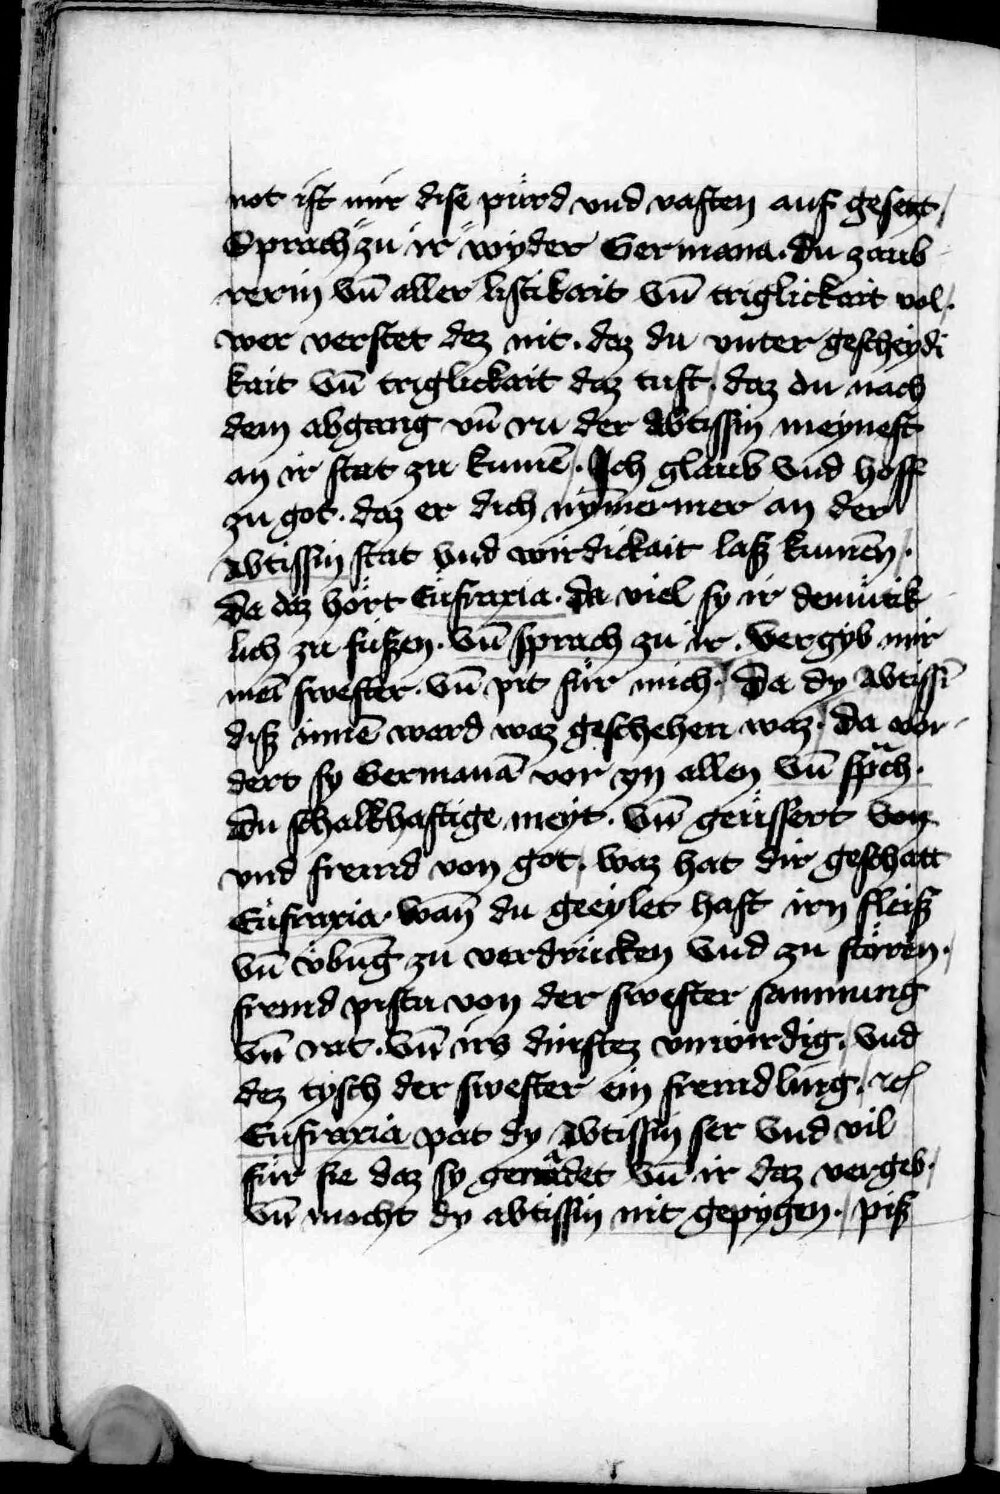 not ist mir dise pürd vnd vasten auf gesetzt /
Sprach zu ir wyder Germana. du zaub
rerin vn̄ aller listikait vn̄ triglickait vol.
wer verstet dez nit. daz du vnter gescheydi
kait vn̄ triglickait daz tust / daz du nach
dem abgang vn̄ ru der Abtissin meynest
an ir stat zu kumē. Ich glaub vnd hoff
zu got. daz er dich nym̄ermer an der
Abtissin stat vnd wirdickait laß kumēn.
Da daz hört Eufraxia. Da viel sy ir demütik
lich zu füßen. vn̄ sprach zu ir. Vergyb mir
meī swester. vn̄ pit für mich. Da dy Abtissī
diß innē ward waz geschehen waz. Da vör
dert sy Germanā vor yn allen vn̄ sprach.
Du schalkhaftige meyt. vn̄ geüssert von
vnd fremd von got. waz hat dir geschatt
Eufraxia. wan̄ du geeylet hast irn fleiß
vn̄ vbūg zu verdrücken vnd zu stören.
fremd pistu von der swester samnung
vn̄ rat. vn̄ irs dinstez vnwirdig / vnd
dez tysch der swester ein fremdling. ⁊c̄
Eufraxia pat dy Abtissin ser vnd vil
für sie daz sy genadet vn̄ ir daz vergeb.
vn̄ mocht dy abtissin nit gepygen. / piß